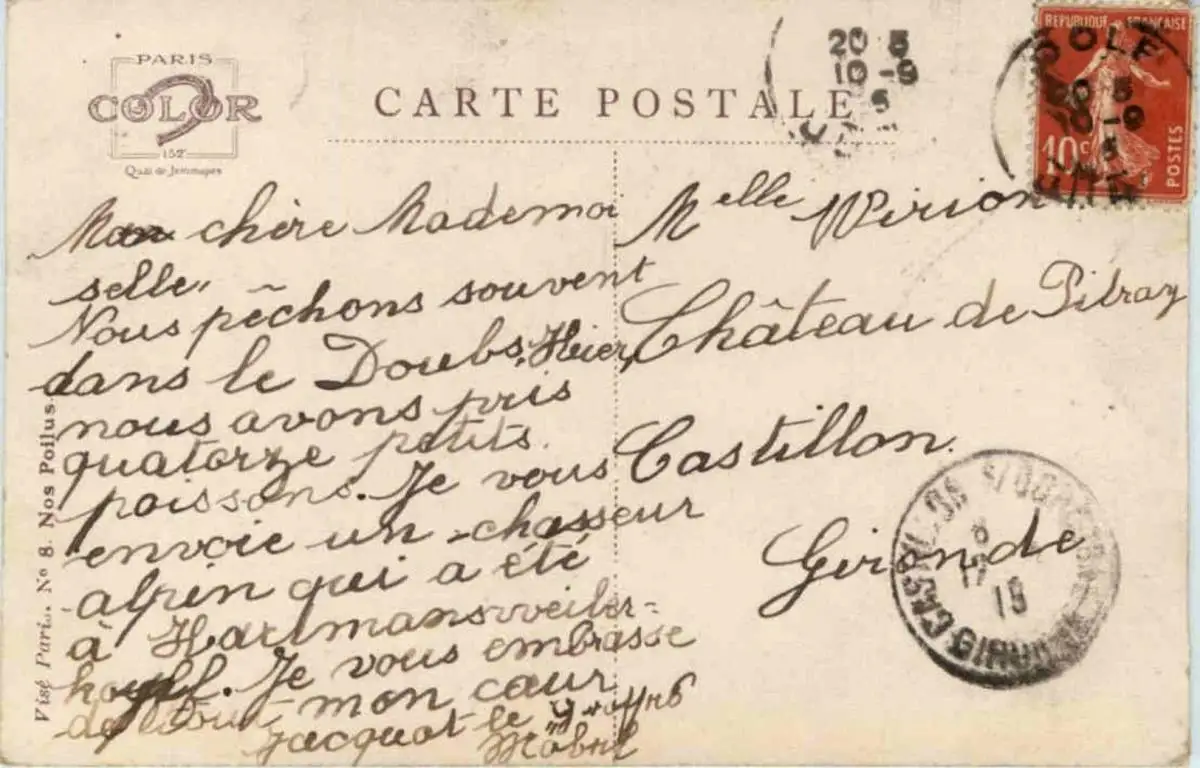 PARIS
COLOR
152
Quai de Jemmapes
CARTE POSTALE
20 5
10-9
REPUBLIQUE FRANÇAISE
10c
POSTES
DOLE
Mon chère Mademoi
selle,
Nous pêchons souvent
dans le Doubs. Hier,
nous avons pris
quatorze petits
poissons. Je vous
envoie un chasseur
alpin qui a été
à Hartmansweiler-
kopf. Je vous embrasse
de tout mon cœur
Jacquot le
Melle Pirion
Château de Pitray
Castillon.
Gironde
15
Visé Paris. No 8. Nos Poilus.